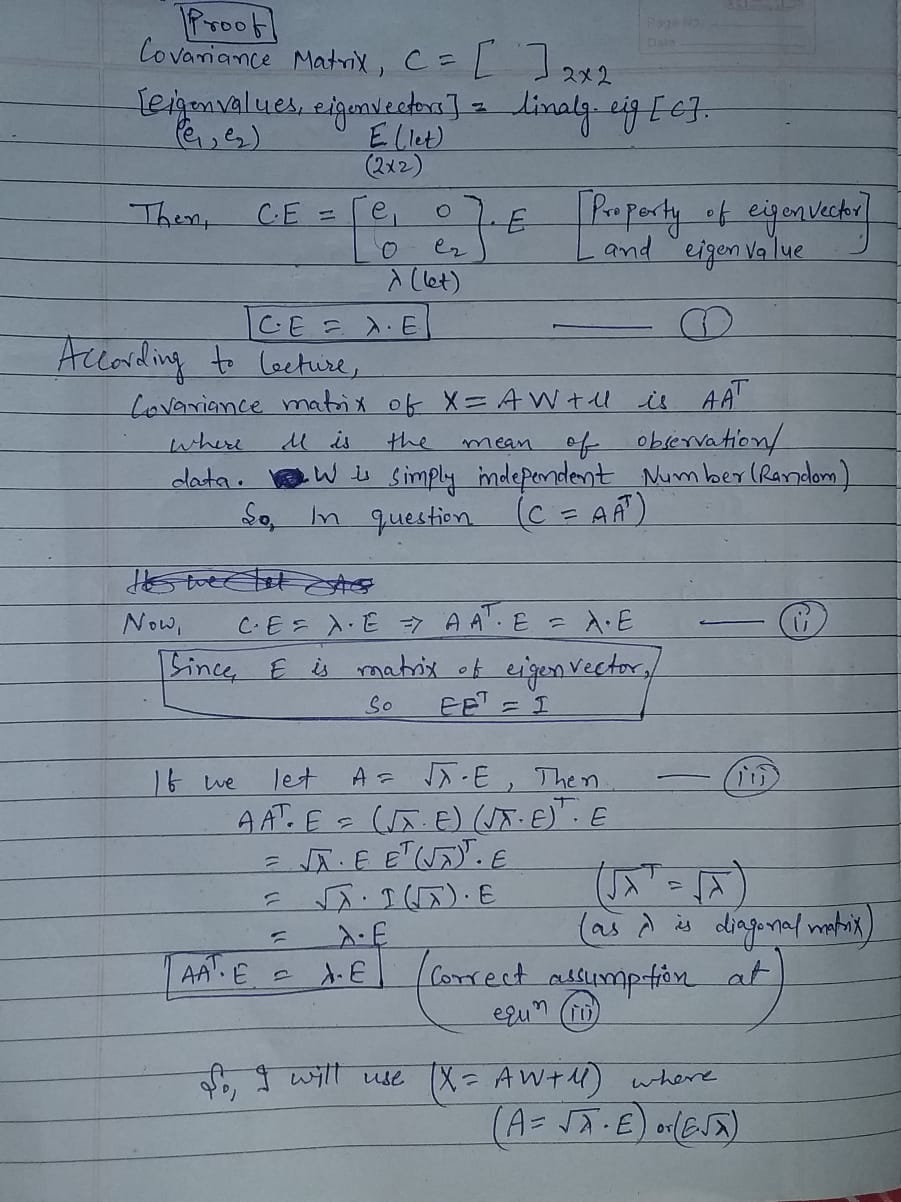 Proof
Page No.
Date
Covariance Matrix, C = [ ] 2x2
[eigenvalues, eigenvectors] = linalg. eig [C].
(e₁, e₂) E (let)
(2x2)
Then, C.E = [e₁ 0 ; 0 e₂] . E [Property of eigenvector and eigenvalue]
λ (let)
C.E = λ.E — (i)
According to lecture,
Covariance matrix of X = AW + μ is AAᵀ
where μ is the mean of observation/
data. W is simply independent Number (Random)
So, In question (C = AAᵀ)
Now, C.E = λ.E ⇒ AAᵀ.E = λ.E — (ii)
Since, E is matrix of eigenvector,
so EEᵀ = I
If we let A = √λ.E, Then — (iii)
AAᵀ.E = (√λ.E) (√λ.E)ᵀ.E
= √λ.E Eᵀ(√λ)ᵀ.E
= √λ. I (√λ).E (√λᵀ = √λ)
= λ.E (as λ is diagonal matrix)
AAᵀ.E = λ.E (Correct assumption at
equⁿ (iii))
So, I will use (X = AW + μ) where
(A = √λ.E) or (E.√λ)